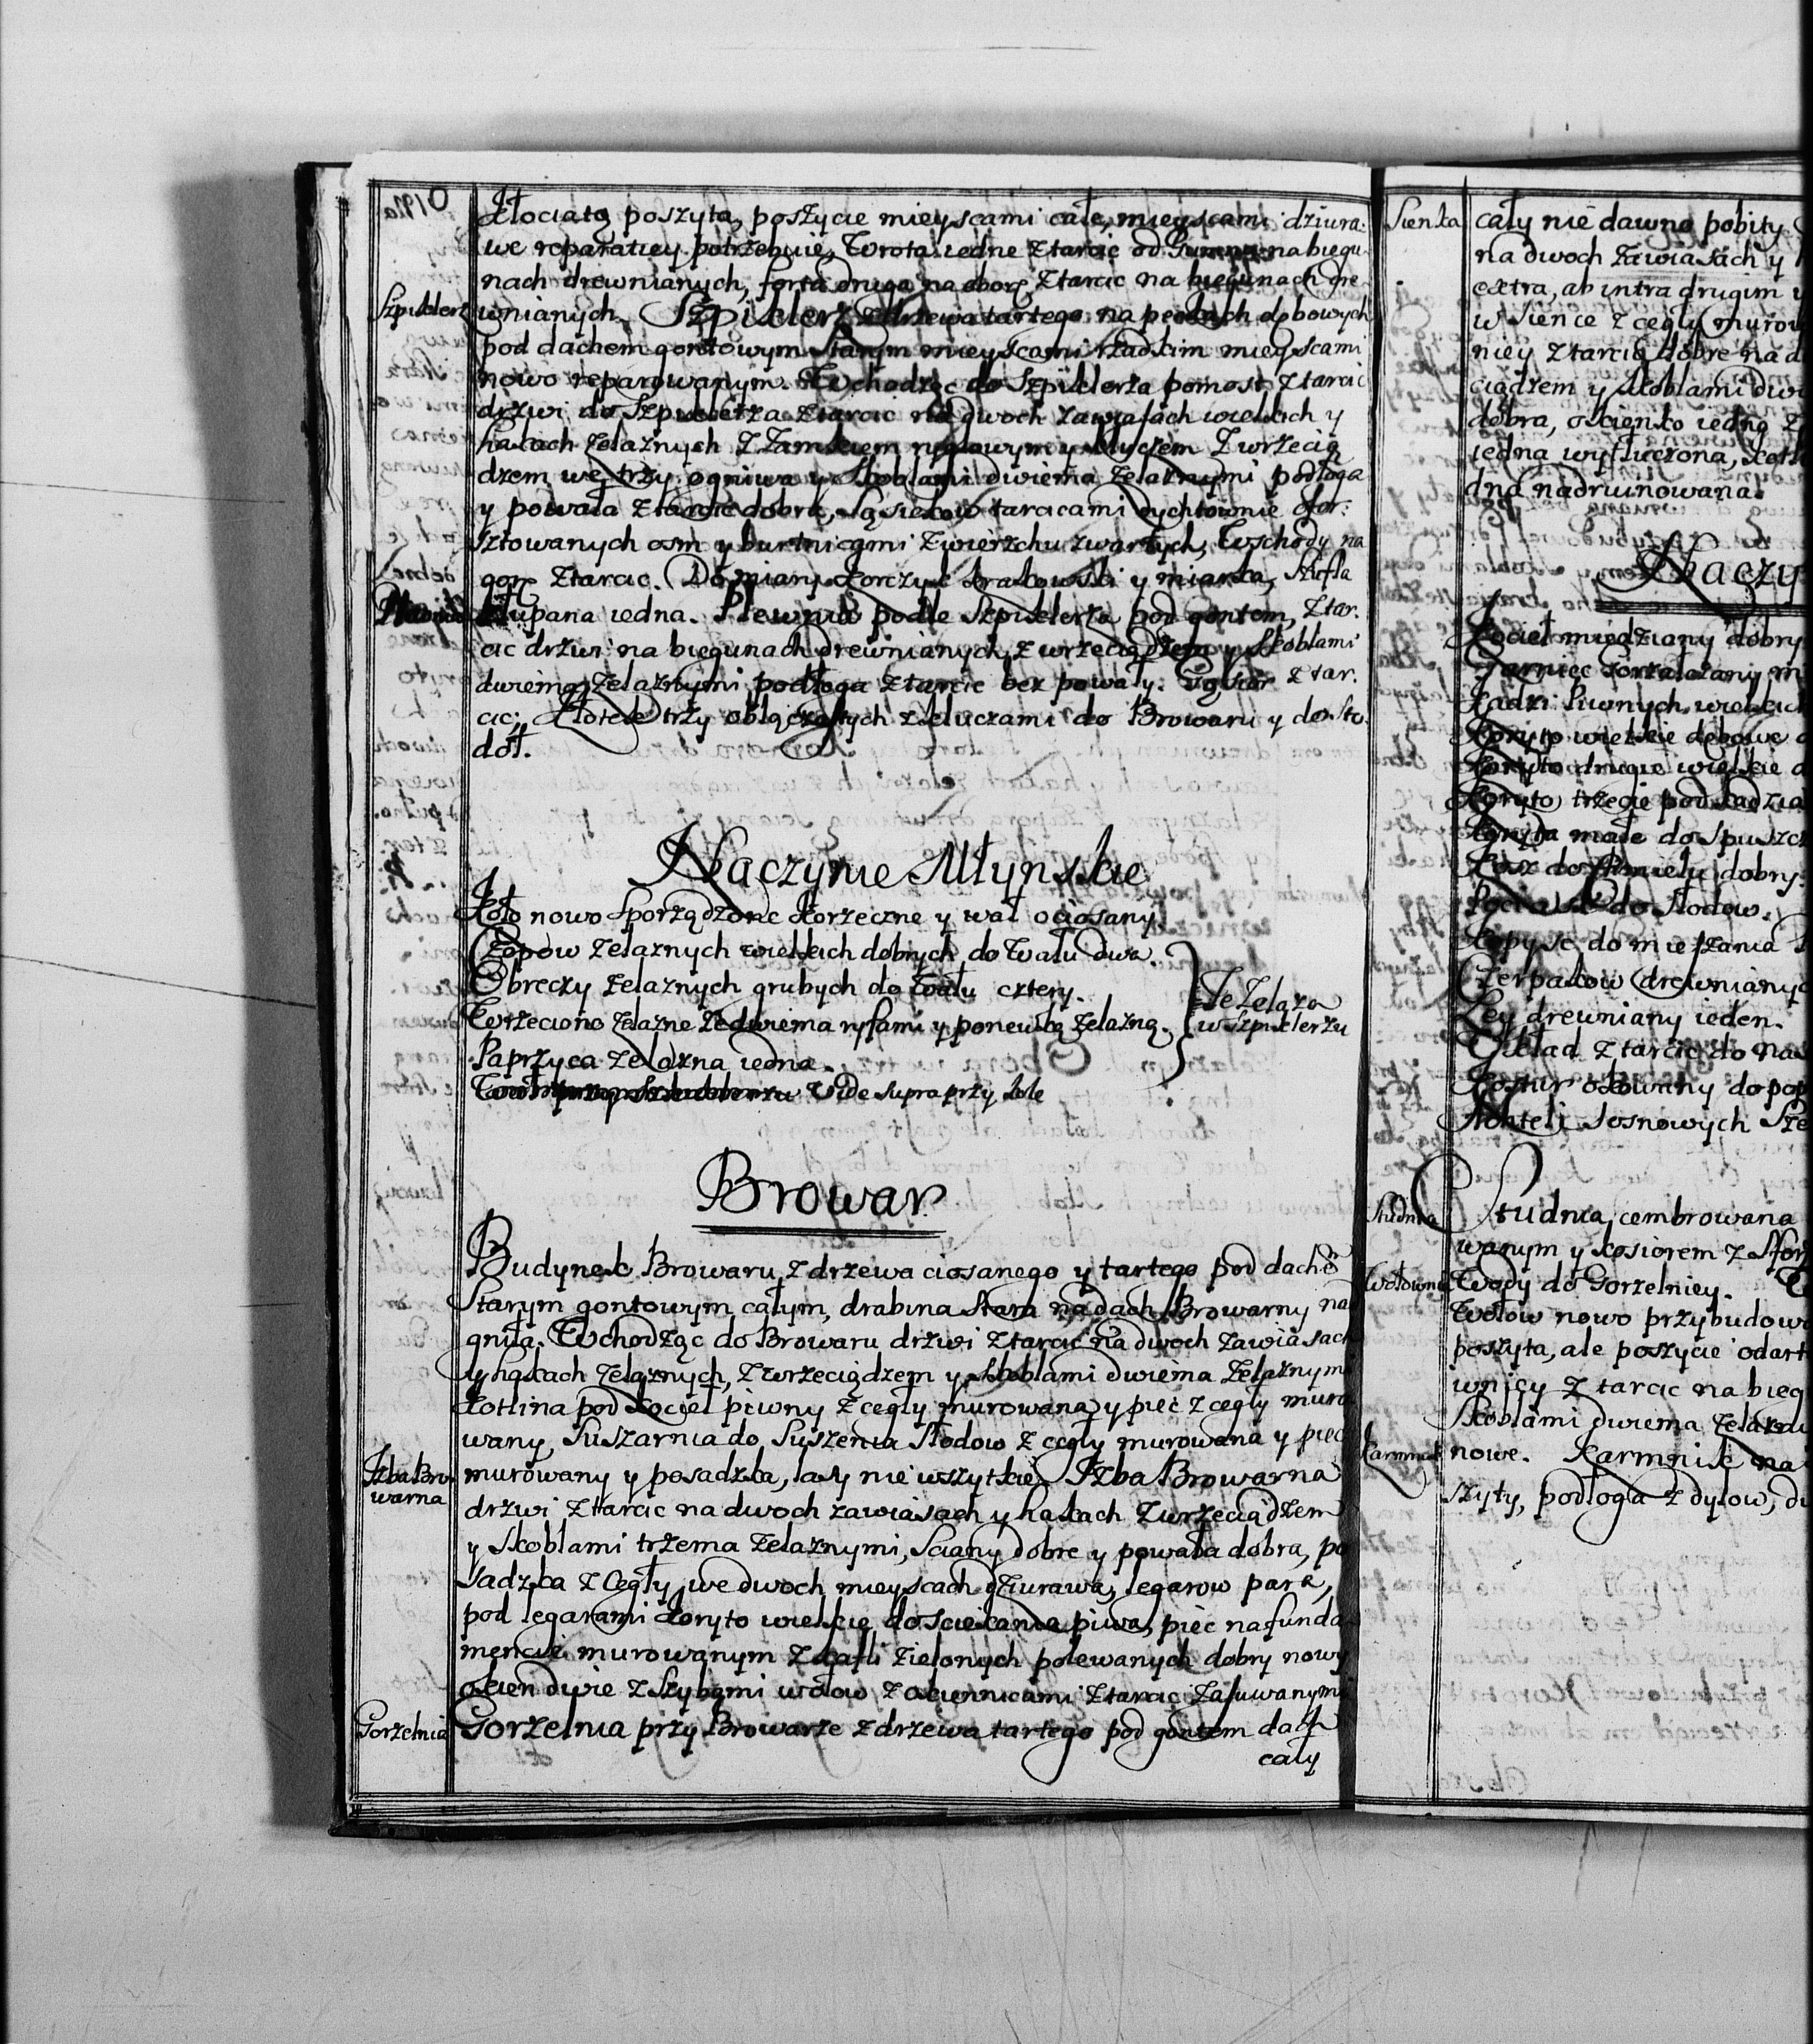 Kłociatą poszyta, poszycie mieyscami całe, mieyscami dziura:
we reparatiey potrzebuie, Wrota iedne z tarcic od Gumna na biegu
nach drewnianych, forta druga na oborę z tarcic na biegunach dre
Szpiklerz
wnianych. Szpiklerz z drzewa tartego na peckach dębowych
pod dachem gontowym starym mieyscami rzadkim mieyscami
nowo reparowanym. Wchodząc do Szpiklerza pomost z tarcic
drzwi do Szpiklerza z tarcic na dwoch zawiasach wielkich y
hakach żelaznych z Zamkiem y kluczem z wrzecią
dzem we trzy ogniwa y Skoblami dwiema żelaznymi podłoga
y powała z tarcic dobra, Sąsiekow tarcicami dychtownie ofor:
sztowanych osm y burtnicami z wierzchu zwartych, Wschody na
gorę z tarcic. Do miary korczyk krakowski y miarka, Szufla
łupana iedna. Plewnia podle Szpiklerza pod gontem, z tar:
cic drzwi na biegunach drewnianych, z wrzeciądzem y Skoblami
dwiema żelaznymi podłoga z tarcic bez powały. z tar:
cic; Klotek trzy obłączastych z kluczami do Browaru y do sto
doł.
Naczynie Młynskie
Koło nowo sporządzone korzeczne y wał ociosany
Czopow żelaznych wielkich dobrych do Wału dwa.
Obręczy żelaznych grubych do Wału cztery.
Wrzeciono żelazne ze dwiema ryfami y ponewką żelazną.
Paprzyca żelazna iedna.
Te Żelaza
w Szpiklerzu
Vide supra przy kole
Browar
Budynek Browaru z drzewa ciosanego y tartego pod dachẽ
Starym gontowym całym, drabina stara na dach Browarny na
gniła. Wchodząc do Browaru drzwi z tarcic na dwoch zawiasach
y hakach żelaznych, z wrzeciądzem y Skoblami dwiema żelaznymi
Kotlina pod Kocieł piwny z cegły murowana y piec z cegły muro
wany, Suszarnia do suszenia Słodow z cegły murowana y piec
Izba Bro
warna
murowany y posadzka, lasy nie wszytkie. Izba Browarna
drzwi z tarcic na dwoch zawiasach y hakach z wrzeciądzem
y Skoblami trzema żelaznymi, Sciany dobre y powała dobra, po
sadzka z Cegły we dwoch mieyscach dziurawa, legarow para,
pod legarami koryto wielkie do sciekania piwa, piec na funda
mencie murowanym z kafli zielonych polewanych dobry nowy
okien dwie z szybami wołow z okiennicami z tarcic zasuwanymi
Gorzelnia
Gorzelnia przy Browarze z drzewa tartego pod gontem dach
cały
Sienka
cały nie dawno pobity
na dwoch zawiasach y
extra, ab intra drugim
w sience z cegły murow
niey z tarcic dobre na d
ciądzem y skoblami dwi
dobra, okienko iedno z
iedna wytłuczona,
dna nadruinowana.
Naczy
Kocieł miedziany dobry
Garniec Gorzałczany m
Kadzi Piwnych wielkich
Koryto wielkie dębowe
Koryto drugie wielkie
Koryto trzecie pod kadzia
Koryta małe do spuszcz
Kosz do chmielu dobry.
do słodow.
Kopysc do mieszania
Czerpakow drewnianych
Ley drewniany ieden.
z tarcic do na
Kostur okowany do pop
sosnowych sze
Studnia
Studnia cembrowana
wanym y kosiorem z
Wołownia
Wody do Gorzelniey.
Wołow nowo przybudowa
poszyta, ale poszycie odart
wnicy z tarcic na bieg
Skoblami dwiema żelazn
Karmnik
nowe. Karmnik na
szyty, podłoga z dylow, dw